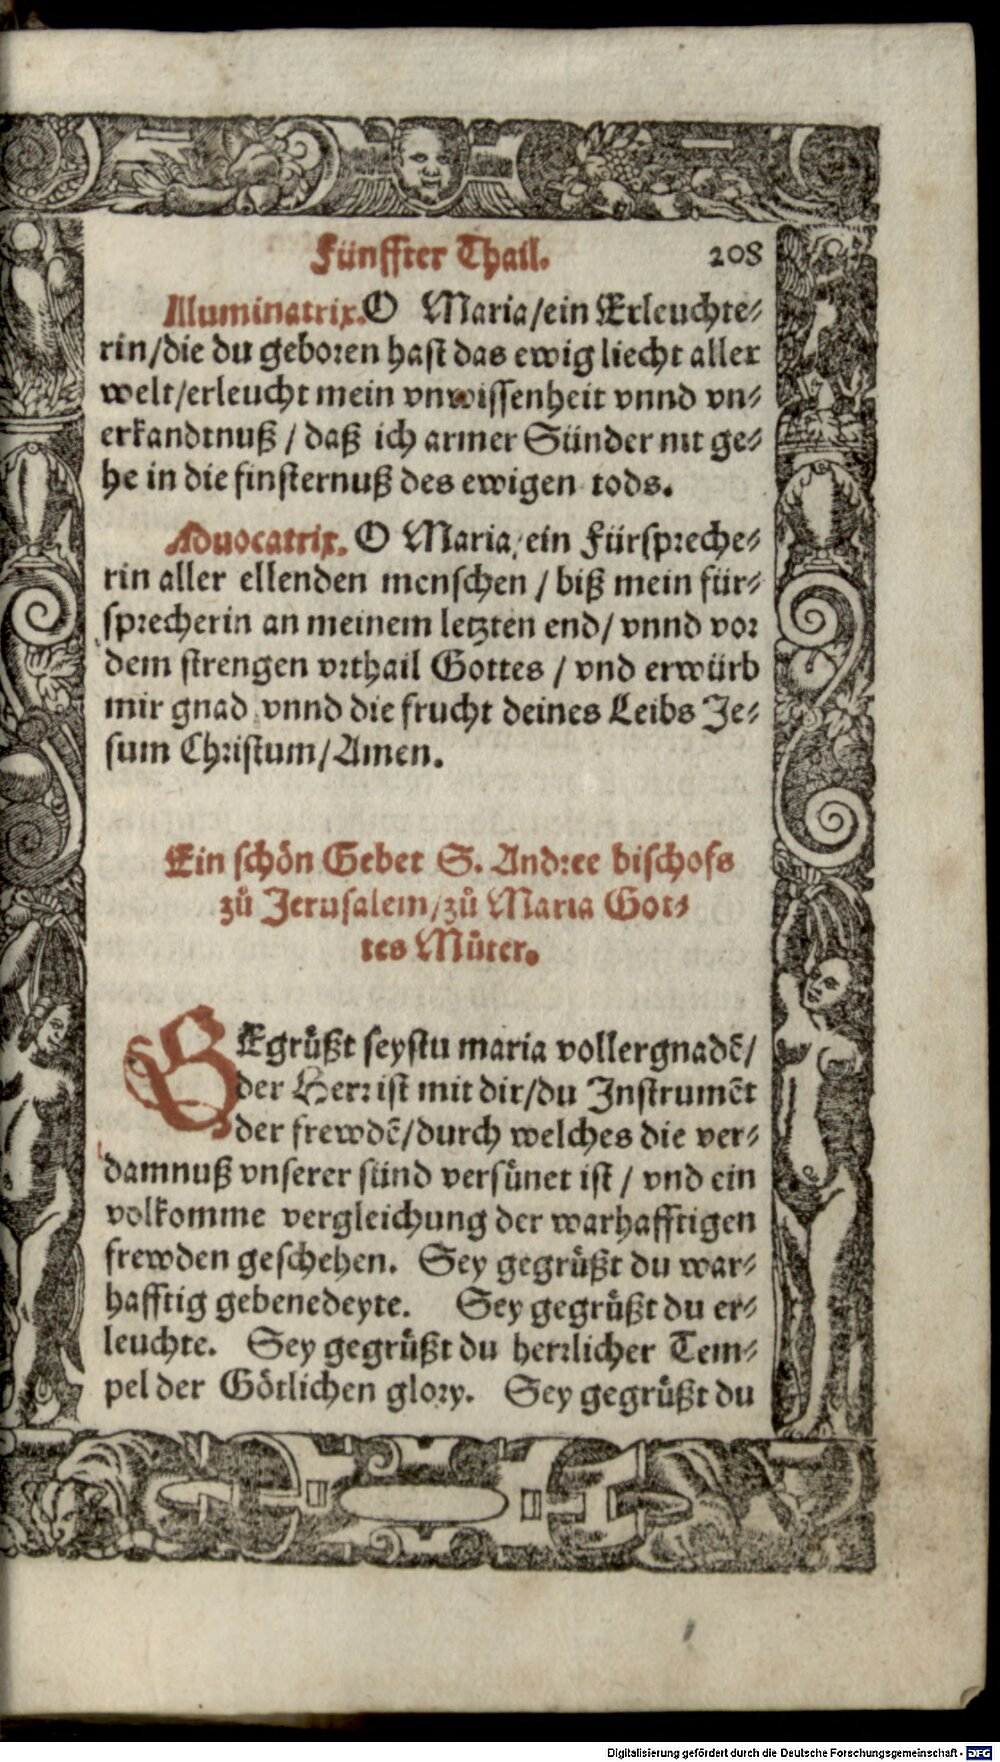 Fünffter Thail. 208
Illuminatrix. O Maria/ein Erleuchte⸗
rin/die du geboren hast das ewig liecht aller
welt/erleucht mein vnwissenheit vnnd vn⸗
erkandtnuß / daß ich armer Sünder nit ge⸗
he in die finsternuß des ewigen tods.
Aduocatrix. O Maria/ein Fürspreche⸗
rin aller ellenden menschen / biß mein für⸗
sprecherin an meinem letzten end/ vnnd vor
dem strengen vrthail Gottes / vnd erwürb
mir gnad vnnd die frucht deines Leibs Je⸗
sum Christum/Amen.
Ein schön Gebet S. Andree bischofs
zů Jerusalem/zů Maria Got⸗
tes Můter.
BEgrůßt seystu maria vollergnadē/
der Herr ist mit dir/du Instrumēt
der frewdē/durch welches die ver⸗
damnuß vnserer sünd versůnet ist / vnd ein
volkomme vergleichung der warhafftigen
frewden geschehen. Sey gegrůßt du war⸗
hafftig gebenedeyte. Sey gegrůßt du er⸗
leuchte. Sey gegrůßt du herrlicher Tem⸗
pel der Götlichen glory. Sey gegrůßt du
Digitalisierung gefördert durch die Deutsche Forschungsgemeinschaft - DFG